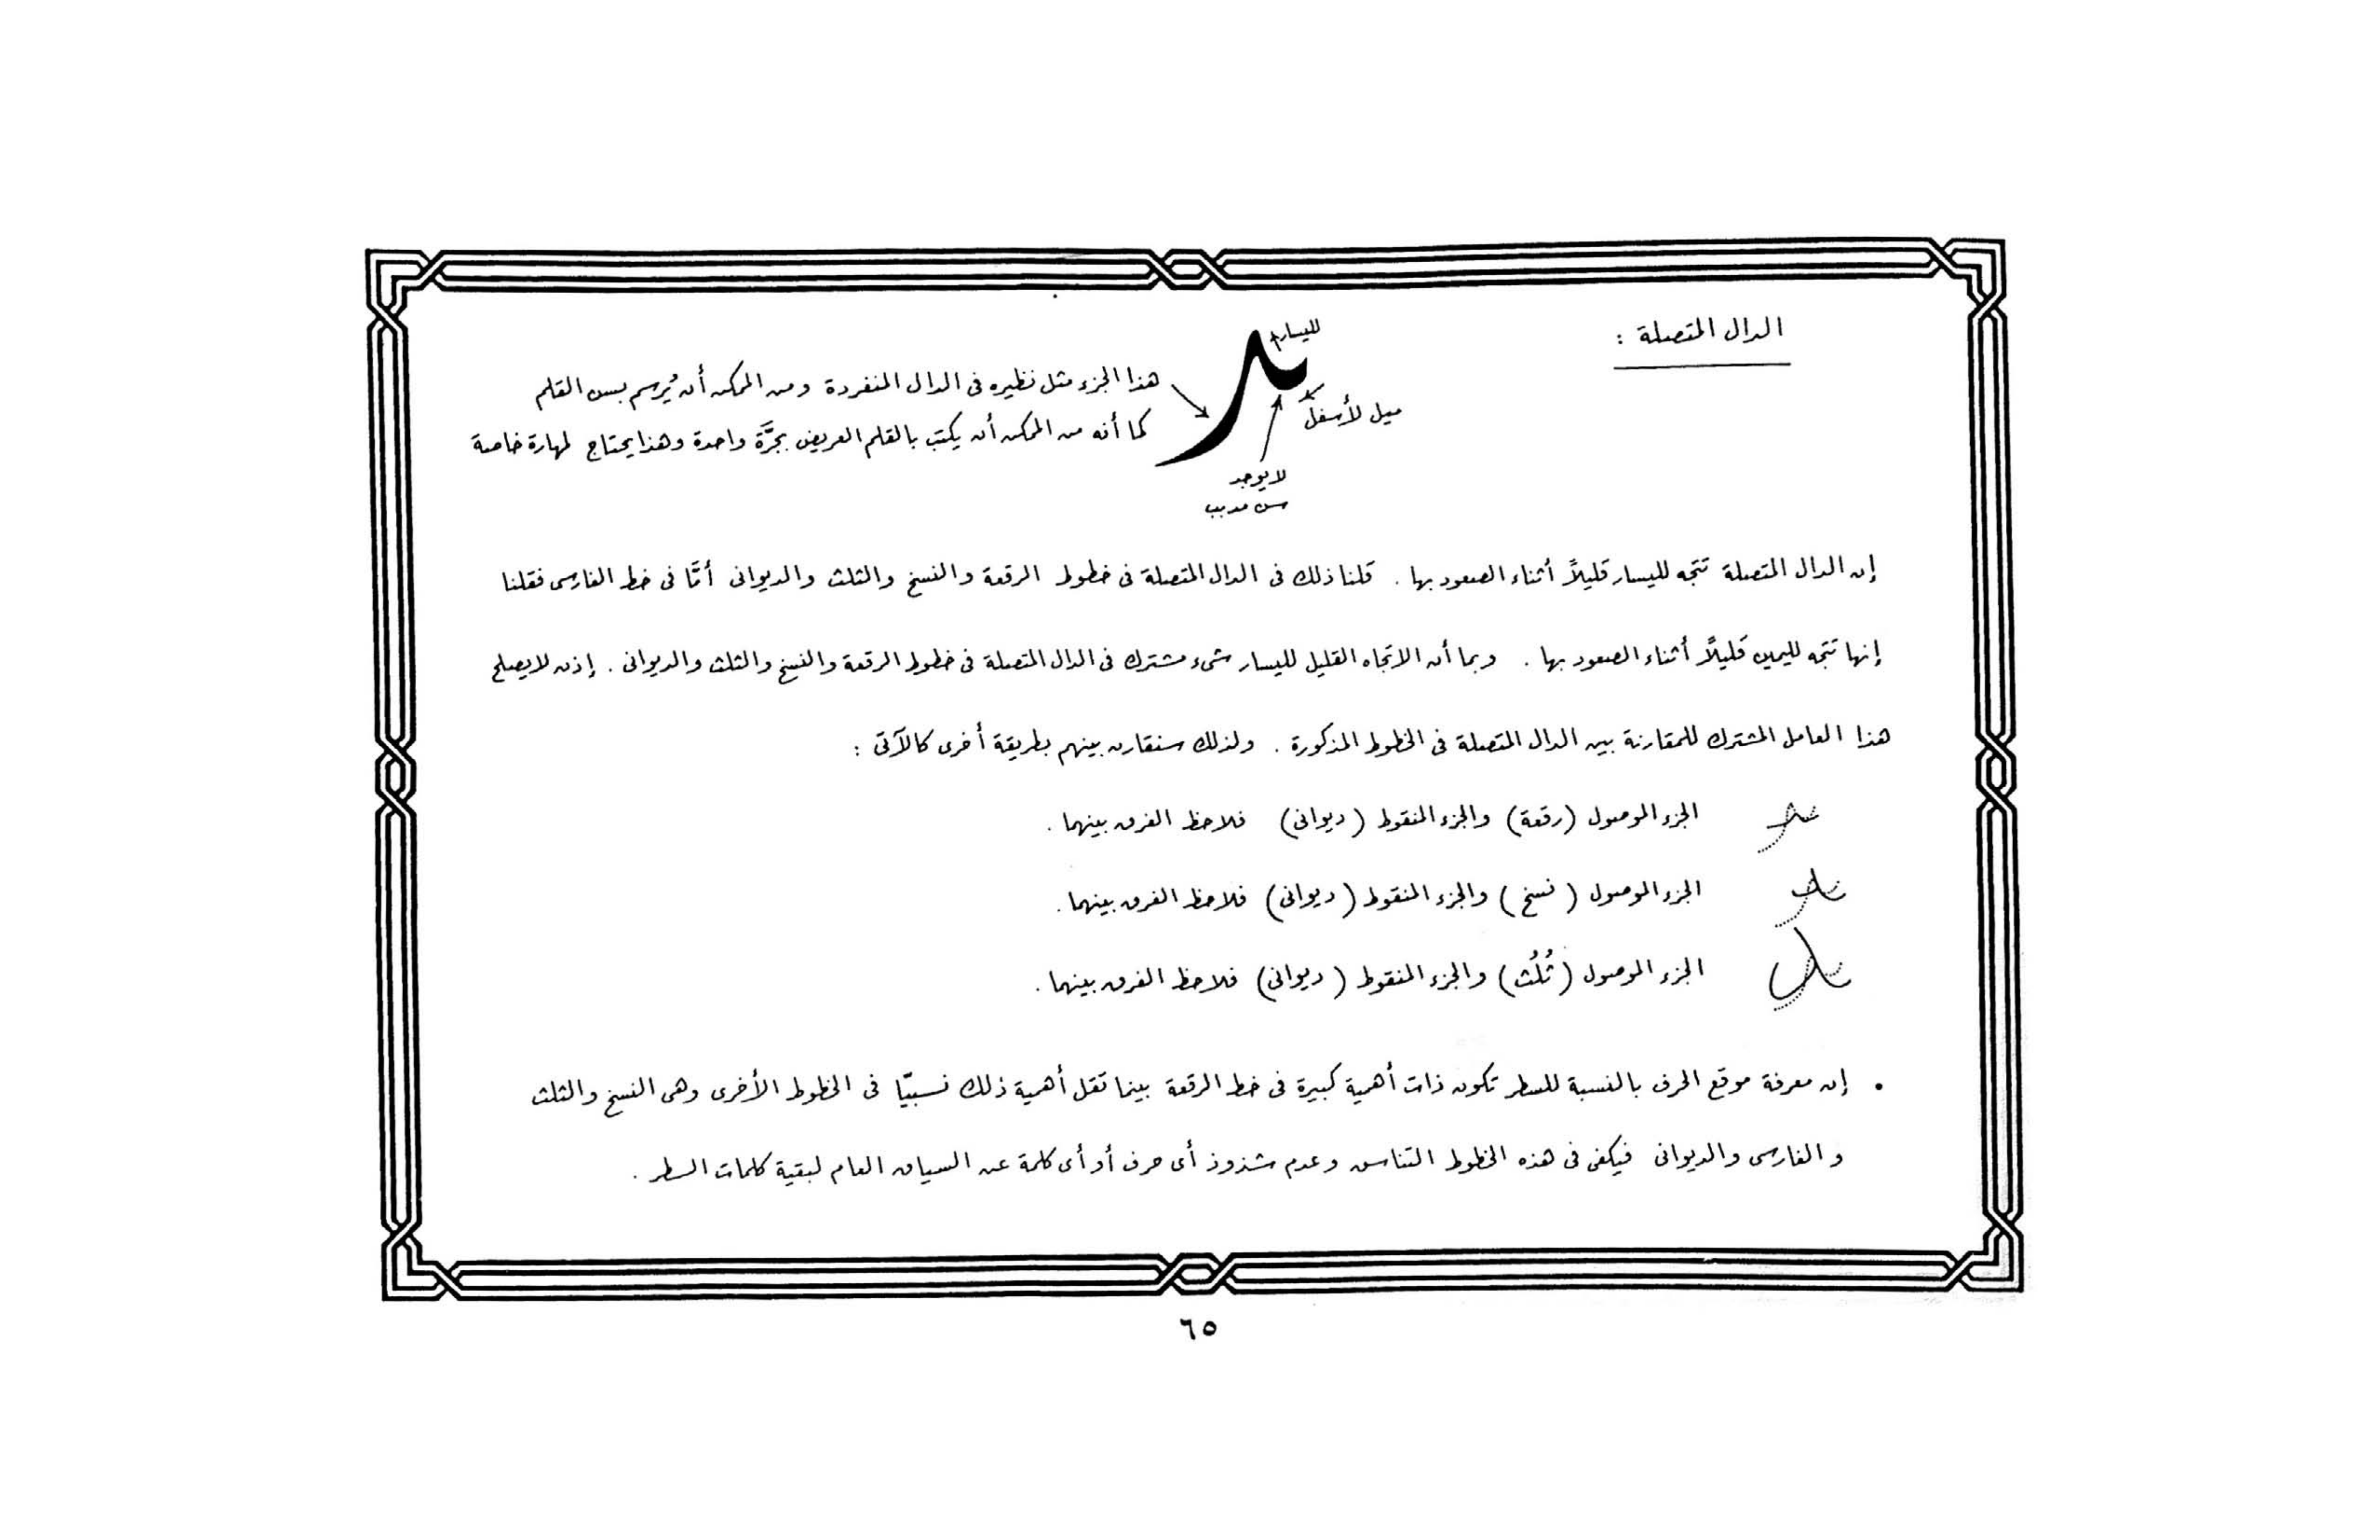 الدال المتصلة :
لليسار
هذا الجزء مثل نظيره فى الدال المنفردة ومن الممكن أن يُرسم بسن القلم
ميل لأسفل
كما أنه من الممكن أن يكتب بالقلم العريض بجرَّة واحدة وهذا يحتاج لمهارة خاصة
لا يوجد
سن مدبب
إن الدال المتصلة تتجه لليسار قليلاً أثناء الصعود بها . قلنا ذلك فى الدال المتصلة فى خطوط الرقعة والنسخ والثلث والديوانى أمَّا فى خط الفارسى فقلنا
إنها تتجه لليمين قليلاً أثناء الصعود بها . وبما أن الاتجاه القليل لليسار شىء مشترك فى الدال المتصلة فى خطوط الرقعة والنسخ والثلث والديوانى . إذن لا يصلح
هذا العامل المشترك للمقارنة بين الدال المتصلة فى الخطوط المذكورة . ولذلك سنقارن بينهم بطريقة أخرى كالآتى :
الجزء الموصول (رقعة) والجزء المنقوط (ديوانى) فلاحظ الفرق بينهما .
الجزء الموصول (نسخ) والجزء المنقوط (ديوانى) فلاحظ الفرق بينهما .
الجزء الموصول (ثُلُث) والجزء المنقوط (ديوانى) فلاحظ الفرق بينهما .
• إن معرفة موقع الحرف بالنسبة للسطر تكون ذات أهمية كبيرة فى خط الرقعة بينما تقل أهمية ذلك نسبيّا فى الخطوط الأخرى وهى النسخ والثلث
و الفارسى والديوانى فيكفى فى هذه الخطوط التناسق وعدم شذوذ أى حرف أو أى كلمة عن السياق العام لبقية كلمات السطر .
٦٥